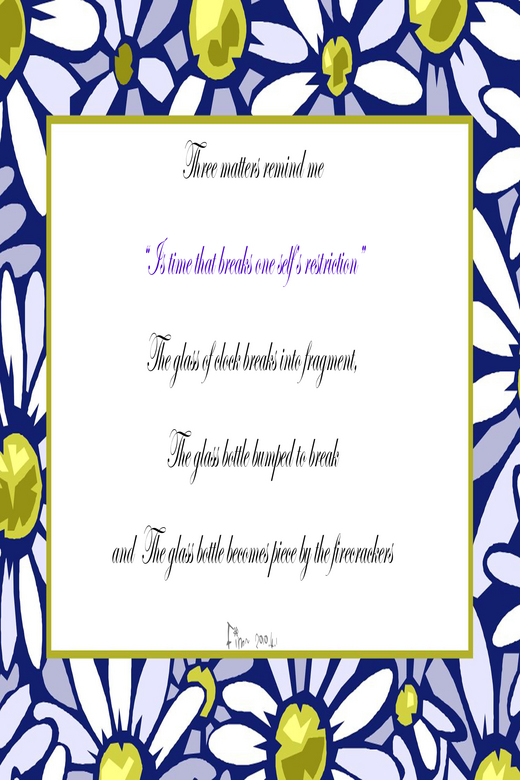 Three matters remind me
"Is time that breaks one self's restriction"
The glass of clock breaks into fragment,
The glass bottle bumped to break
and The glass bottle becomes piece by the firecrackers
2004